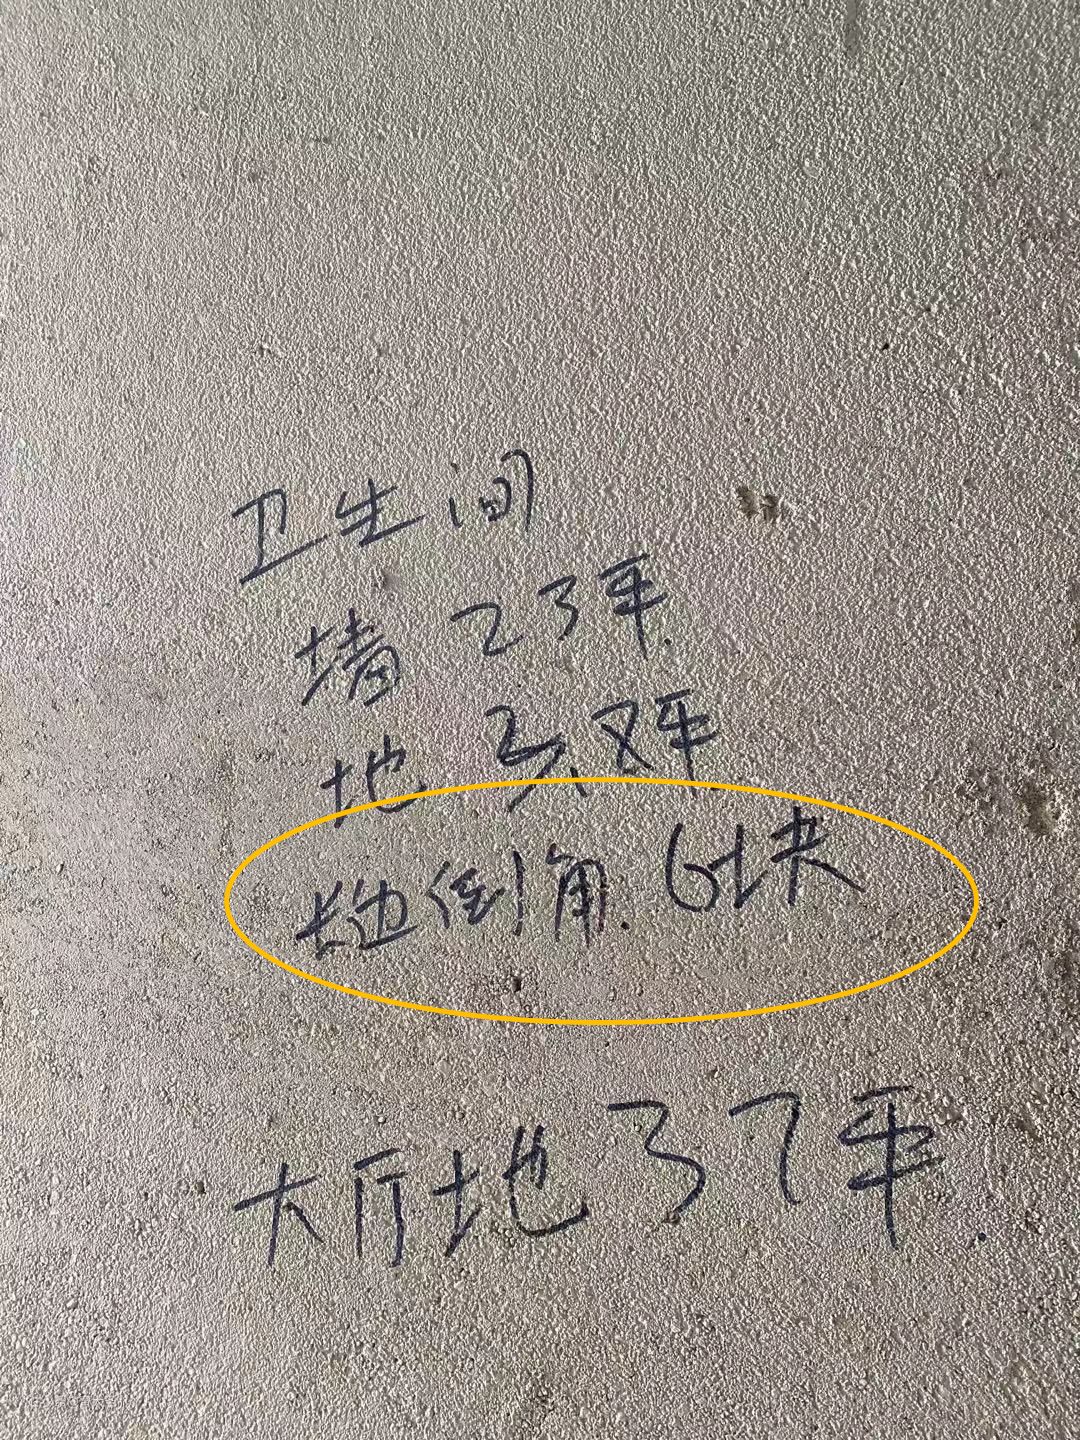 卫生间
墙 23平.
地 平
长边倒角. 6块
大厅地 37平.